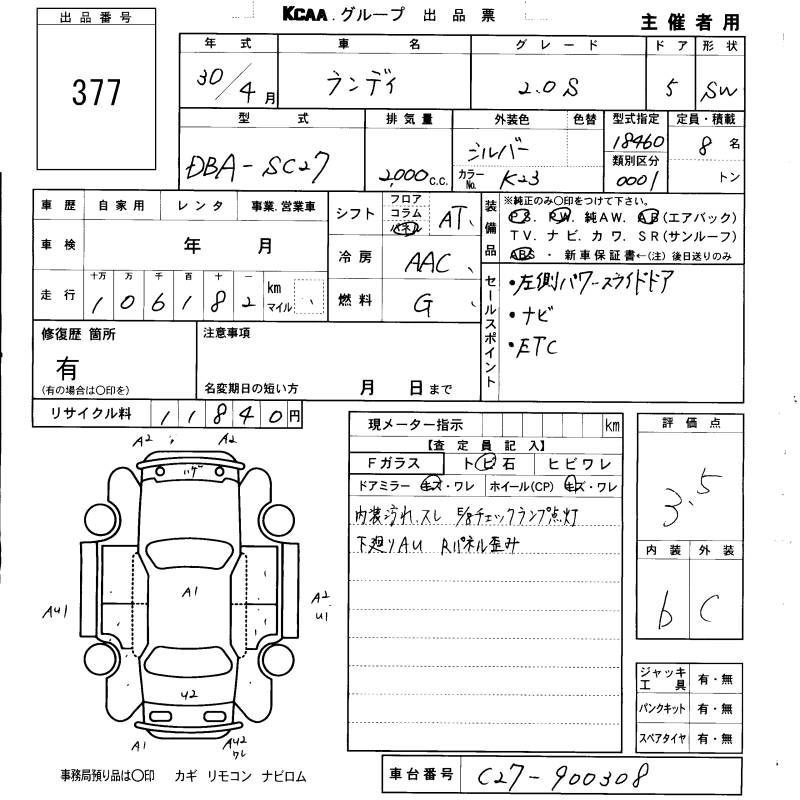 KCAA.グループ 出品票
主催者用
出品番号
377
年式 車名 グレード ドア 形状
30/4月 ランディ 2.0S 5 SW
型式 排気量 外装色 色替 型式指定 定員・積載
DBA-SC27 2,000c.c. シルバー 18460 8名
カラーNo. K23 類別区分 0001 トン
車歴 自家用 レンタ 事業.営業車
車検 年 月
走行 十万 万 千 百 十 一 km マイル
1 0 6 1 8 2
シフト フロア コラム パネル AT
冷房 AAC
燃料 G
装備品
※純正のみ○印をつけて下さい。
PS. PW. 純AW. AB(エアバック)
TV. ナビ. カワ. SR(サンルーフ)
ABS ・ 新車保証書←(注)後日送りのみ
セールスポイント
・左側パワースライドドア
・ナビ
・ETC
修復歴 箇所
有
(有の場合は○印を)
注意事項
名変期日の短い方 月 日まで
リサイクル料 11840円
現メーター指示 km
【査定員記入】
Fガラス トビ石 ヒビワレ
ドアミラー キズ・ワレ ホイール(CP) キズ・ワレ
内装汚れ、スレ E/gチェックランプ点灯
下廻りAU Rパネル歪み
評価点
3.5
内装 外装
b C
ジャッキ工具 有・無
パンクキット 有・無
スペアタイヤ 有・無
A2 A2
ハゲ
A1
AU1
A2 U1
U2
A1
AU2 ワレ
事務局預り品は○印 カギ リモコン ナビロム
車台番号 C27-900308